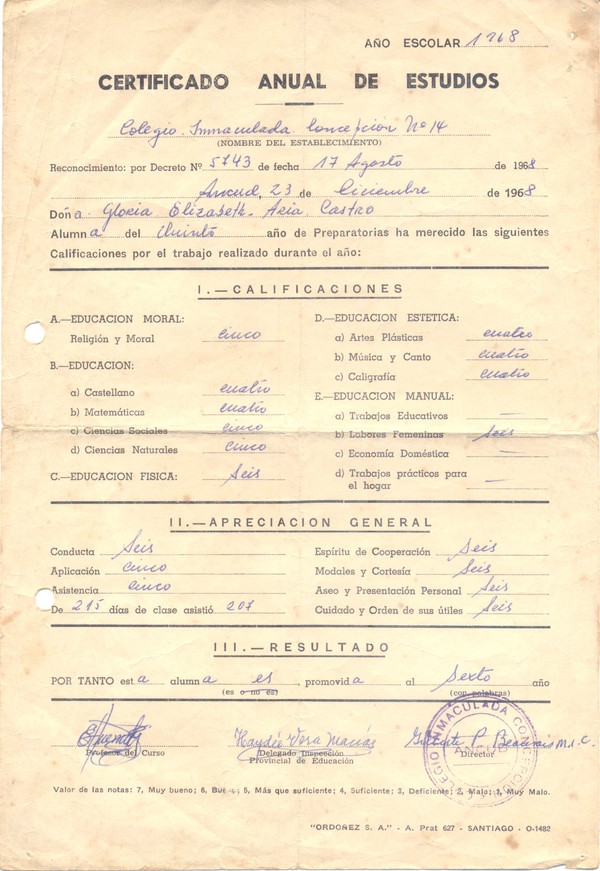 AÑO ESCOLAR 1968
CERTIFICADO ANUAL DE ESTUDIOS
Colegio Inmaculada Concepción Nº 14
(NOMBRE DEL ESTABLECIMIENTO)
Reconocimiento: por Decreto Nº 5743 de fecha 17 Agosto de 1968
Ancud, 23 de Diciembre de 1968
Doña Gloria Elizabeth Aria Castro
Alumna del Quinto año de Preparatorias ha merecido las siguientes
Calificaciones por el trabajo realizado durante el año:
I.—CALIFICACIONES
A.—EDUCACION MORAL:
Religión y Moral cinco
B.—EDUCACION:
a) Castellano cuatro
b) Matemáticas cuatro
c) Ciencias Sociales cinco
d) Ciencias Naturales cinco
C.—EDUCACION FISICA: Seis
D.—EDUCACION ESTETICA:
a) Artes Plásticas cuatro
b) Música y Canto cuatro
c) Caligrafía cuatro
E.—EDUCACION MANUAL:
a) Trabajos Educativos —
b) Labores Femeninas Seis
c) Economía Doméstica —
d) Trabajos prácticos para
el hogar —
II.—APRECIACION GENERAL
Conducta Seis
Aplicación cinco
Asistencia cinco
De 215 días de clase asistió 207
Espíritu de Cooperación Seis
Modales y Cortesía Seis
Aseo y Presentación Personal Seis
Cuidado y Orden de sus útiles Seis
III.—RESULTADO
POR TANTO esta alumna es, promovida al Sexto año
(es o no es) (con palabras)
Haydée Vera Macías
Profesor del Curso
Delegado Inspección
Provincial de Educación
Director
COLEGIO INMACULADA CONCEPCION
Valor de las notas: 7, Muy bueno; 6, Bueno; 5, Más que suficiente; 4, Suficiente; 3, Deficiente; 2, Malo; 1, Muy Malo.
"ORDOÑEZ S. A." - A. Prat 627 - SANTIAGO - O-1482